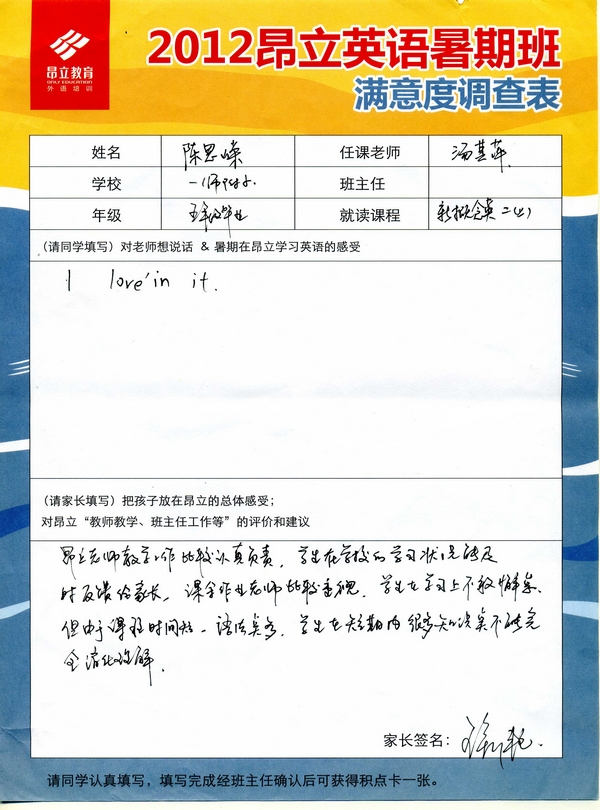 昂立教育
ONLY EDUCATION
外语培训
2012昂立英语暑期班
满意度调查表
姓名 陈思嵘 任课老师 汤其萍
学校 一师附小 班主任
年级 五年级毕业 就读课程 新概念英二(上)
(请同学填写)对老师想说话 & 暑期在昂立学习英语的感受
I love'in it.
(请家长填写)把孩子放在昂立的总体感受;
对昂立“教师教学、班主任工作等”的评价和建议
昂立老师教学工作比较认真负责,学生在学校的学习状况能及
时反馈给家长。课余作业老师比较重视,学生在学习上不敢懈怠。
但由于课程时间短,语法点多,学生在短期内很多知识点不能完
全消化理解.
家长签名:
请同学认真填写,填写完成经班主任确认后可获得积点卡一张。